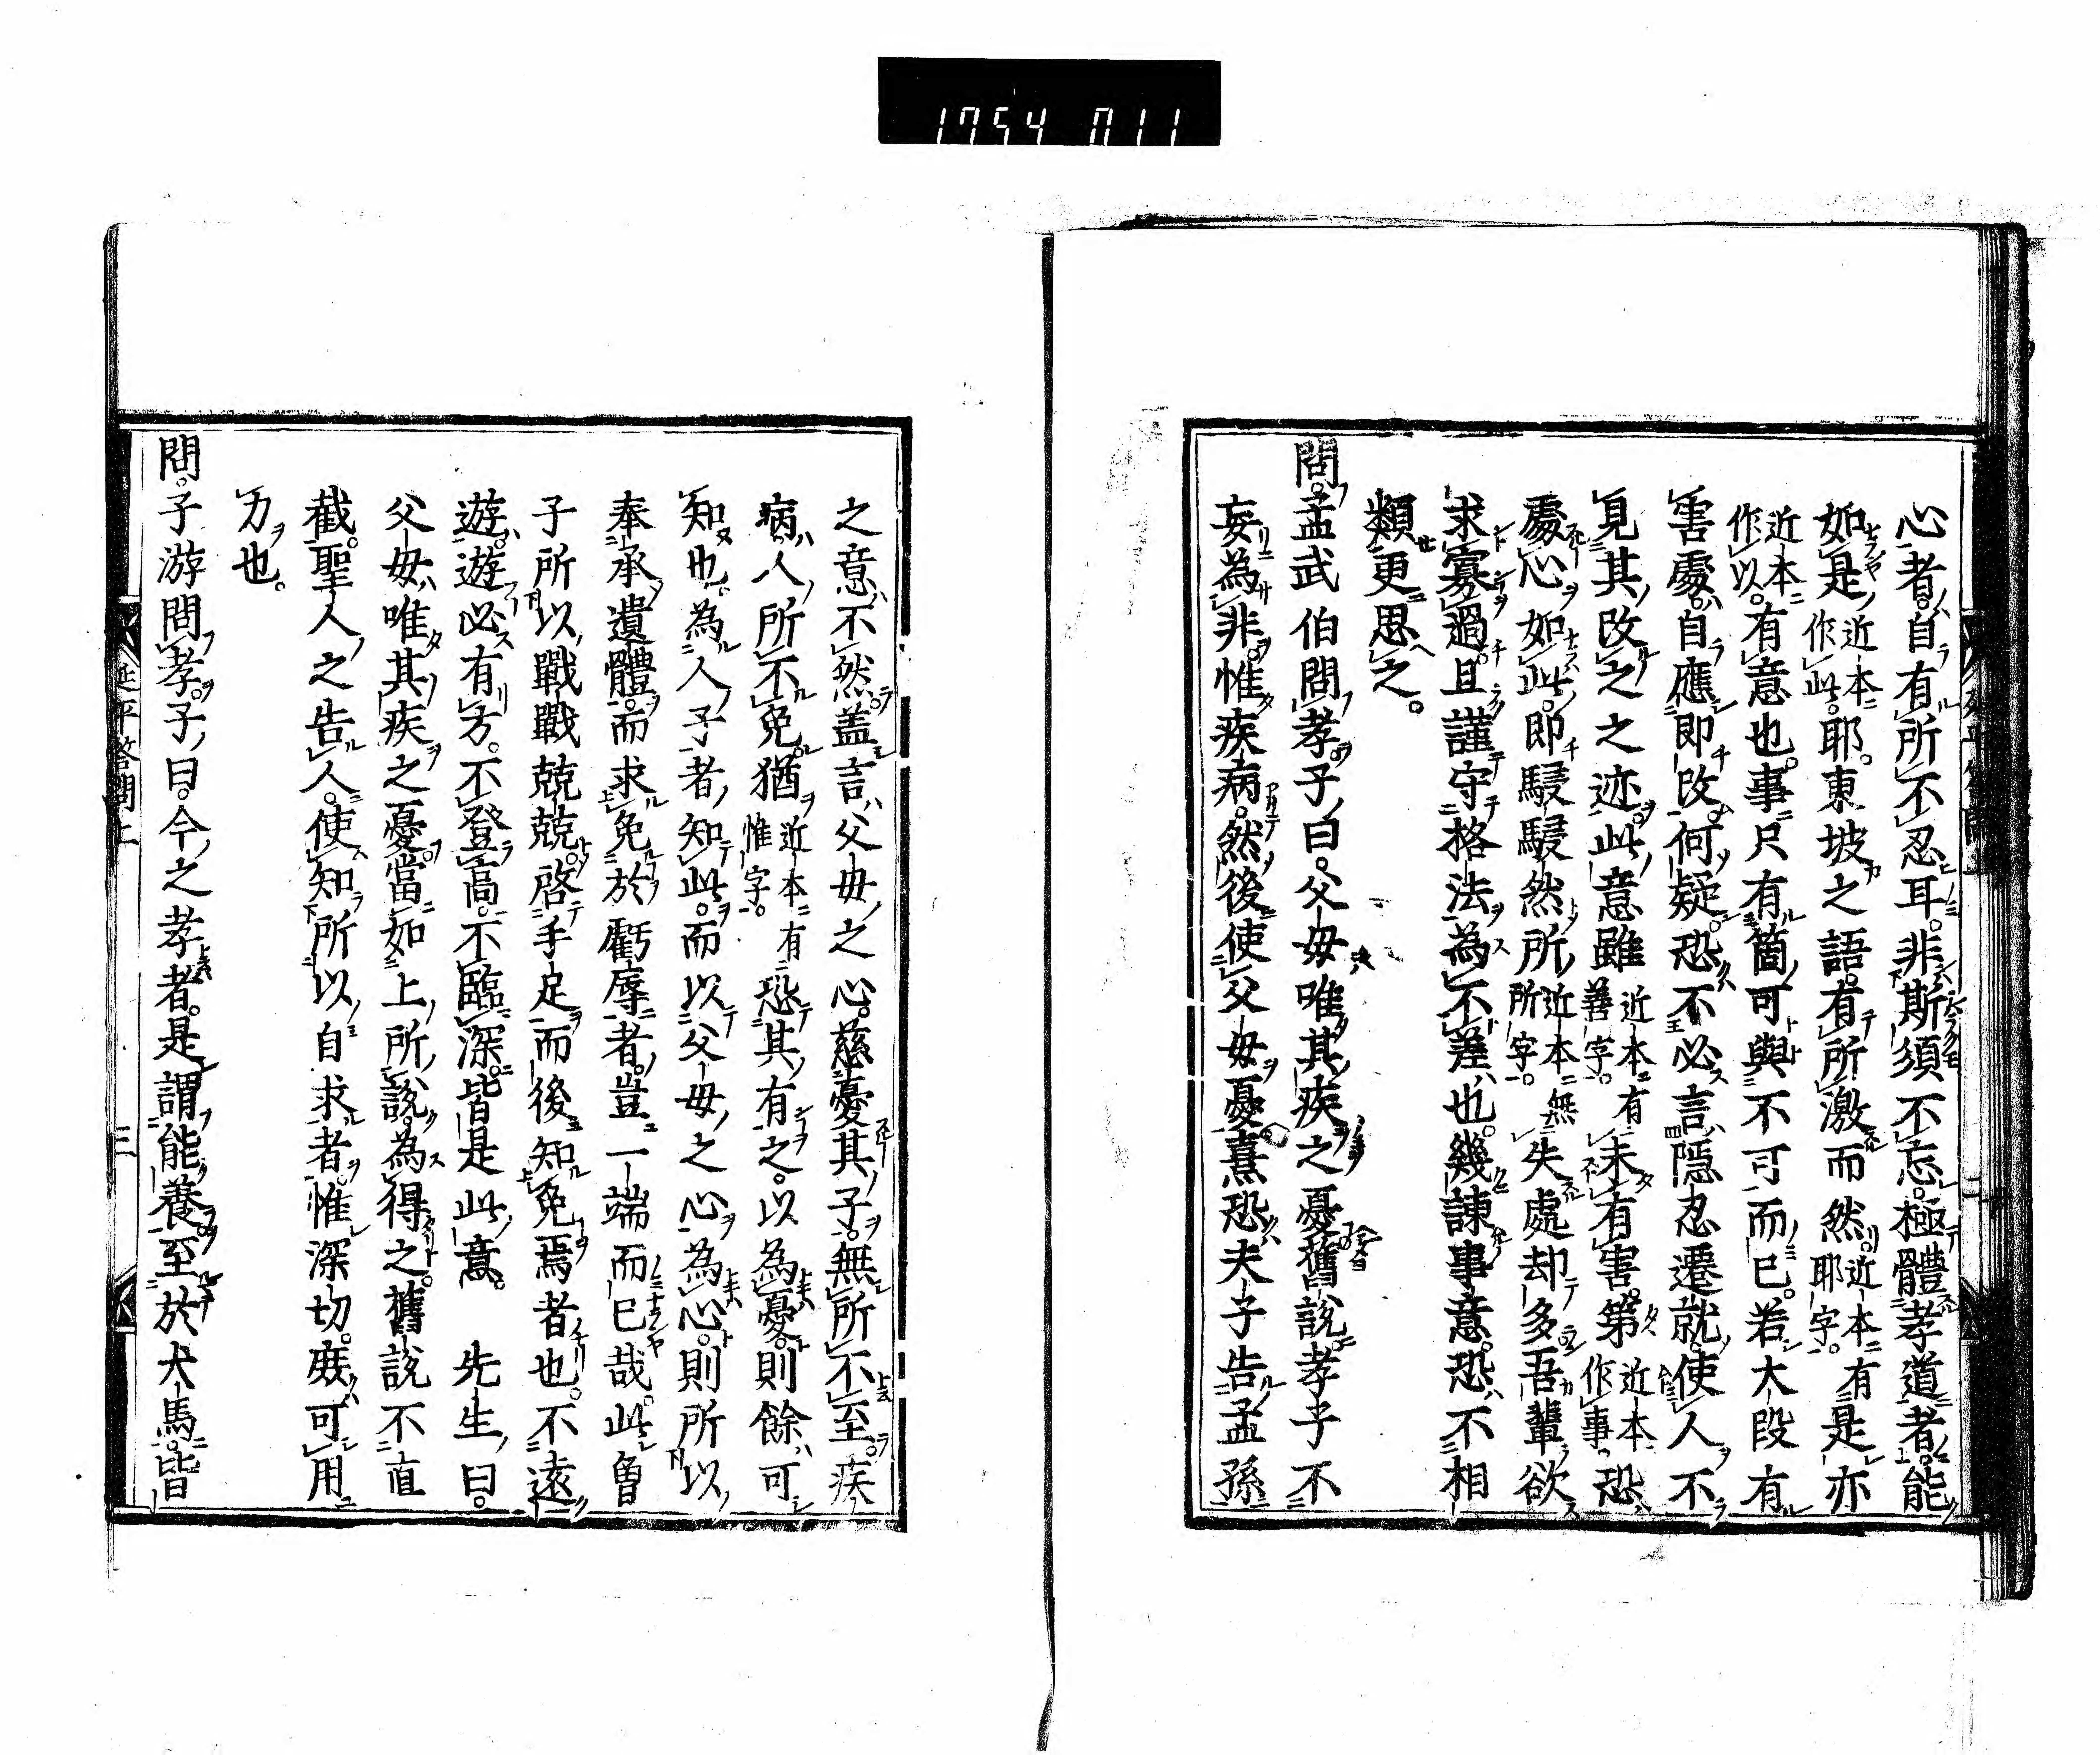 1754 011
心者。自有所不忍耳。非斯須不忘。極體孝道者。能
如是近本作此。耶。東坡之語。有所激而然近本有耶字。是亦
近本作以。有意也。事只有箇可與不可而已。若大段有
害處。自應即改。何疑。恐不必言隱忍遷就。使人不
見其改之之迹。此意雖近本有善字。未有害。第近本作事。恐
處心如此。即駸駸然所近本無所字。失處却多。吾輩欲
求寡過。且謹守格法為不差也。幾諫事意。恐不相
類。更思之。
問。孟武伯問孝。子曰。父母唯其疾之憂。舊說孝子不
妄為非。惟疾病。然後使父母憂。熹恐夫子告孟孫
之意不然。盖言父母之心。慈憂其子。無所不至。疾
病人所不免。猶近本有惟字。恐其有之。以為憂。則餘可
知也。為人子者。知此。而以父母之心為心。則所以
奉承遺體。而求免於虧辱者。豈一端而已哉。此曾
子所以戰戰兢兢。啓手足而後知免焉者也。不遠
遊。遊必有方。不登高。不臨深。皆是此意。　先生曰。
父母唯其疾之憂。當如上所說。為得之。舊說不直
截。聖人之告人。使知所以自求者。惟深切。庶可用
力也。
問。子游問孝。子曰。今之孝者。是謂能養。至於犬馬。皆
延平答問上
三